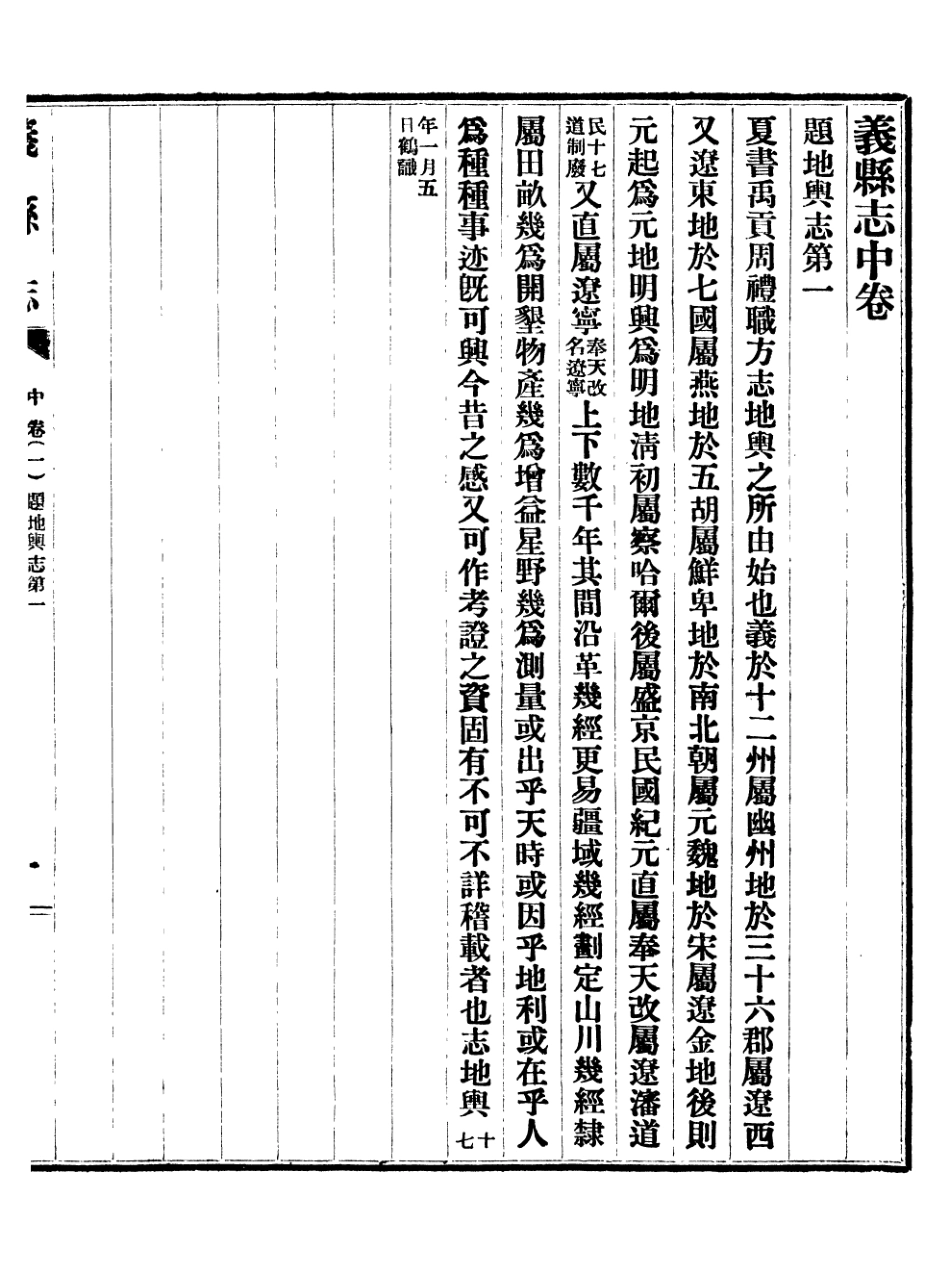 義縣志中卷
題地輿志第一
夏書禹貢周禮職方志地輿之所由始也義於十二州屬幽州地於三十六郡屬遼西
又遼東地於七國屬燕地於五胡屬鮮卑地於南北朝屬元魏地於宋屬遼金地後則
元起爲元地明興爲明地淸初屬察哈爾後屬盛京民國紀元直屬奉天改屬遼瀋道
民十七道制廢又直屬遼寧奉天改名遼寧上下數千年其間沿革幾經更易疆域幾經劃定山川幾經隸
屬田畝幾爲開墾物產幾爲增益星野幾爲測量或出乎天時或因乎地利或在乎人
爲種種事迹旣可興今昔之感又可作考證之資固有不可不詳稽載者也志地輿十七
年一月五日鶴識
義縣志 中卷(一)題地輿志第一